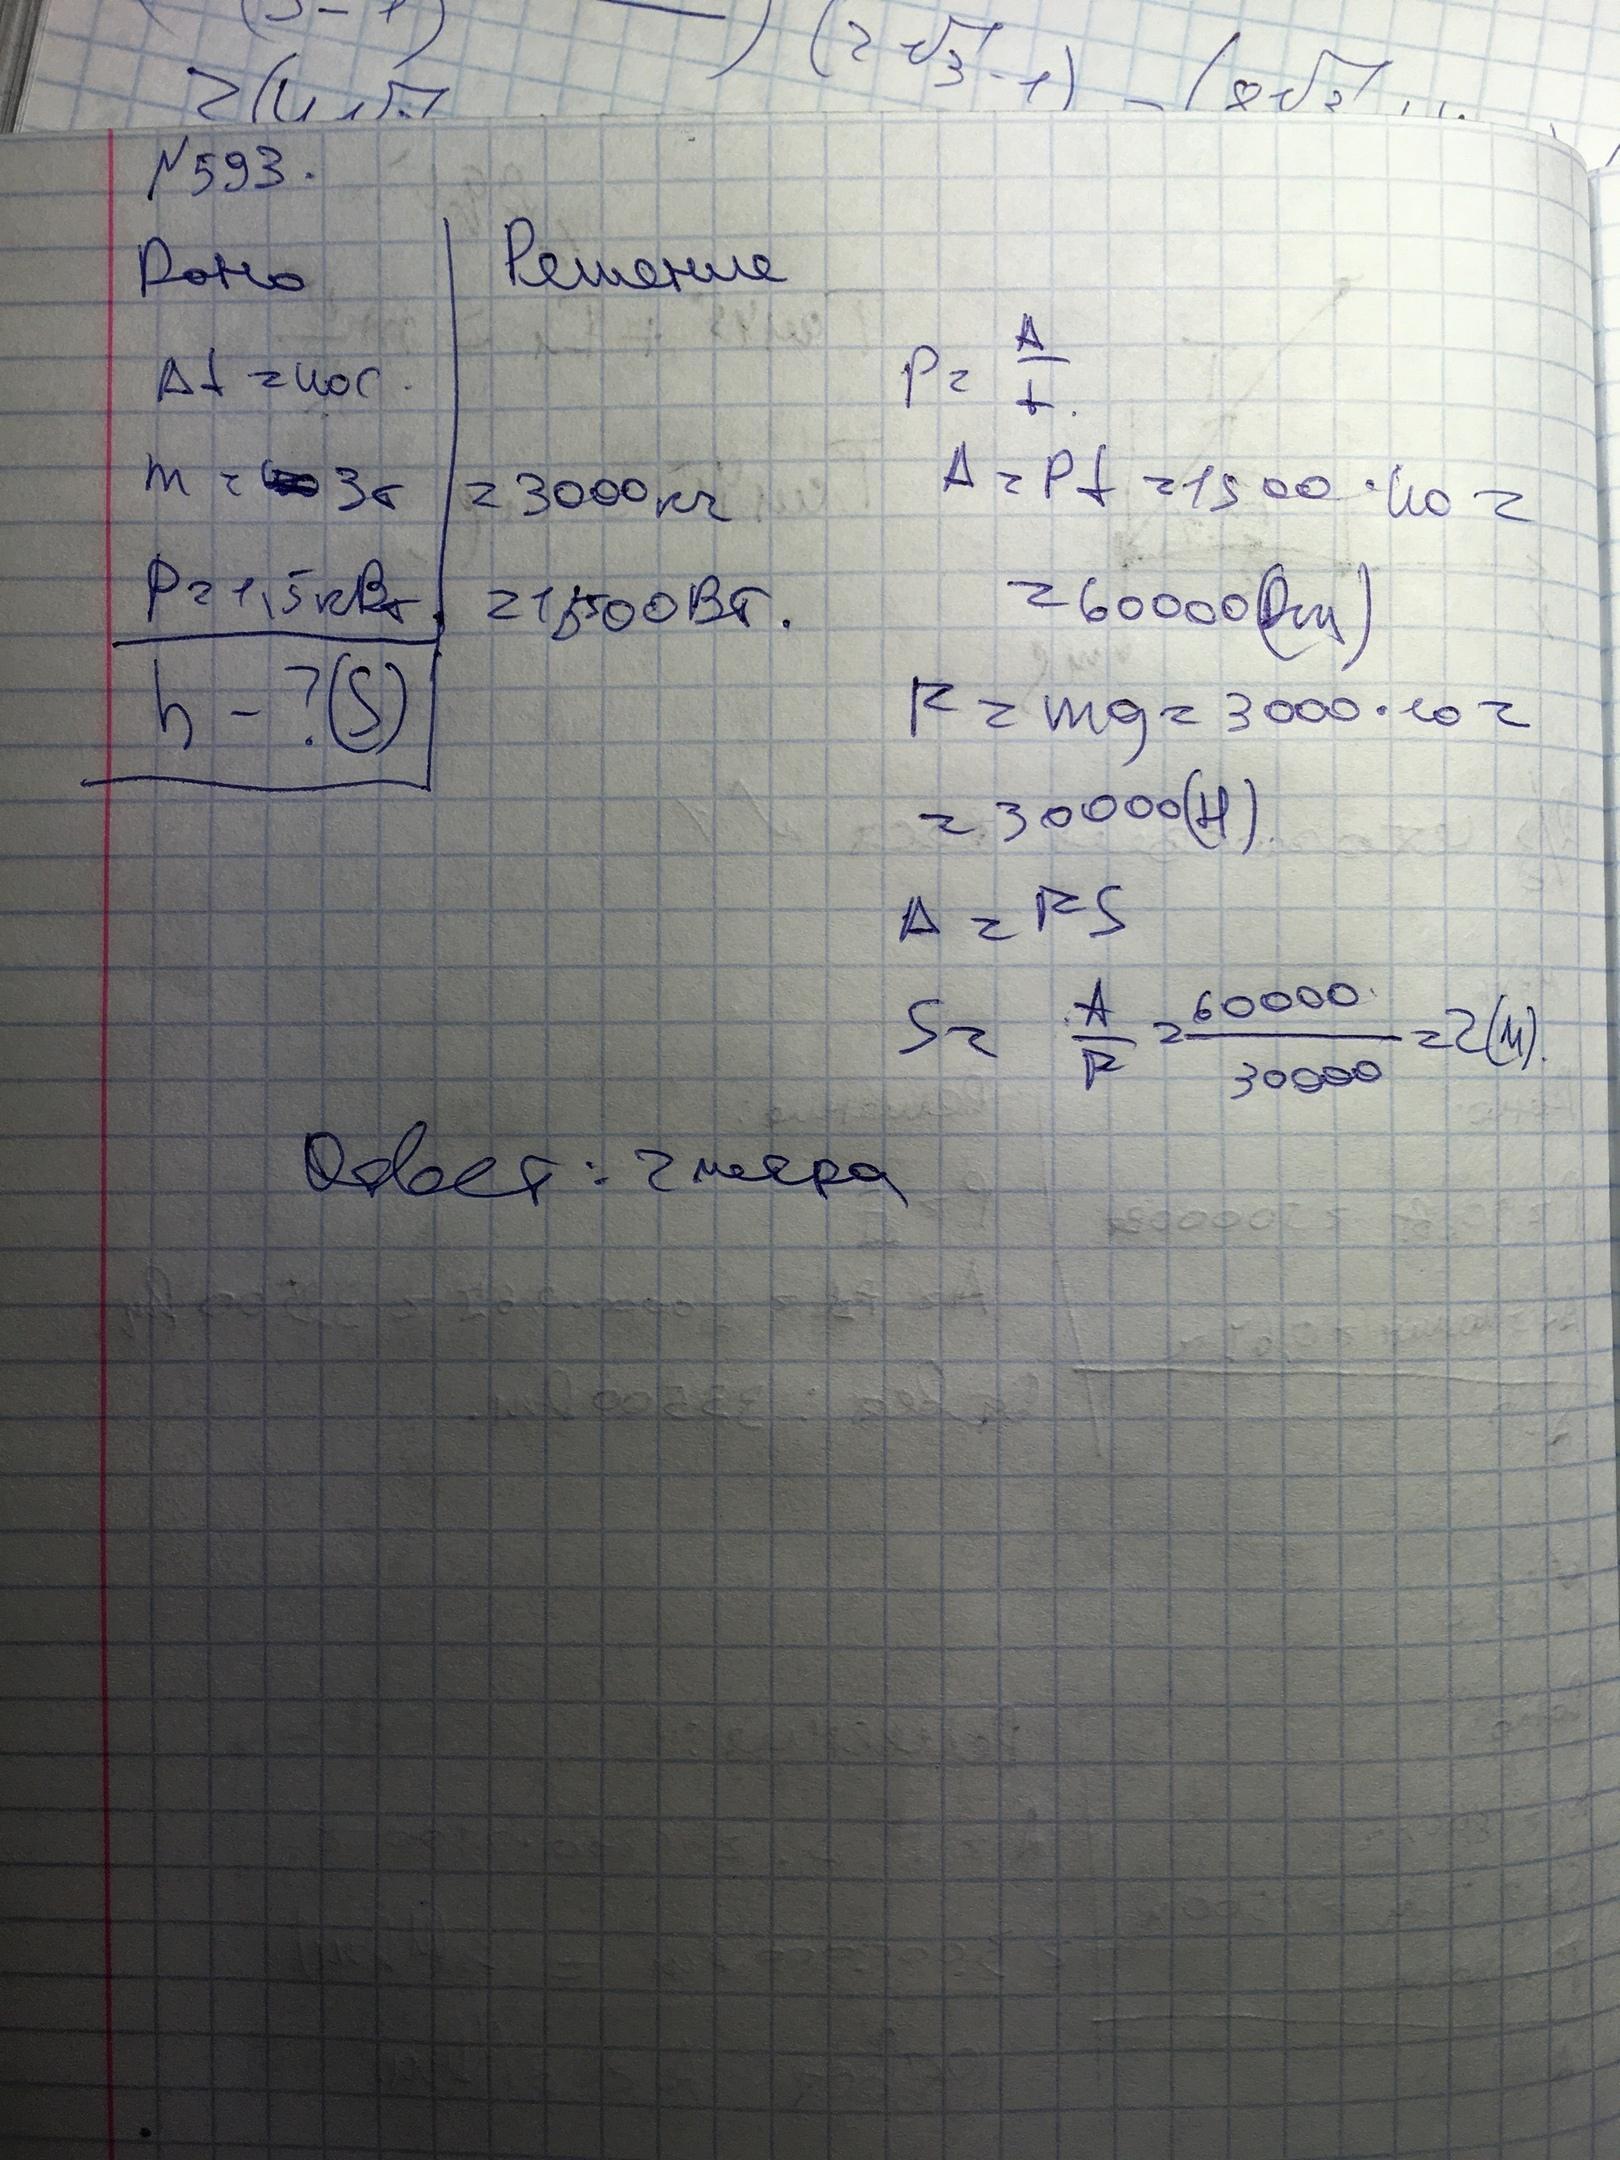 (2√3-1) - (8√3
N593.
Дано
Решение
Δt = 40с.
m = 3т = 3000кг
P = 1,5кВт. = 1500Вт.
h - ?(S)
P = A/t.
A = Pt = 1500 · 40 =
= 60000(Дж)
F = mg = 3000 · 10 =
= 30000(Н)
A = FS
S = A/F = 60000/30000 = 2(м).
Ответ: 2 метра